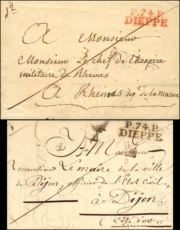 P.74.P.
DIEPPE
A Monsieur
Monsieur Le chef de l'hospice
militaire de Rheims
A Rheims dep de la Marne
P.74.P.
DIEPPE
A Monsieur
Monsieur Lemaire de la ville
de Dijon, officier de l'Etat Civil
à Dijon